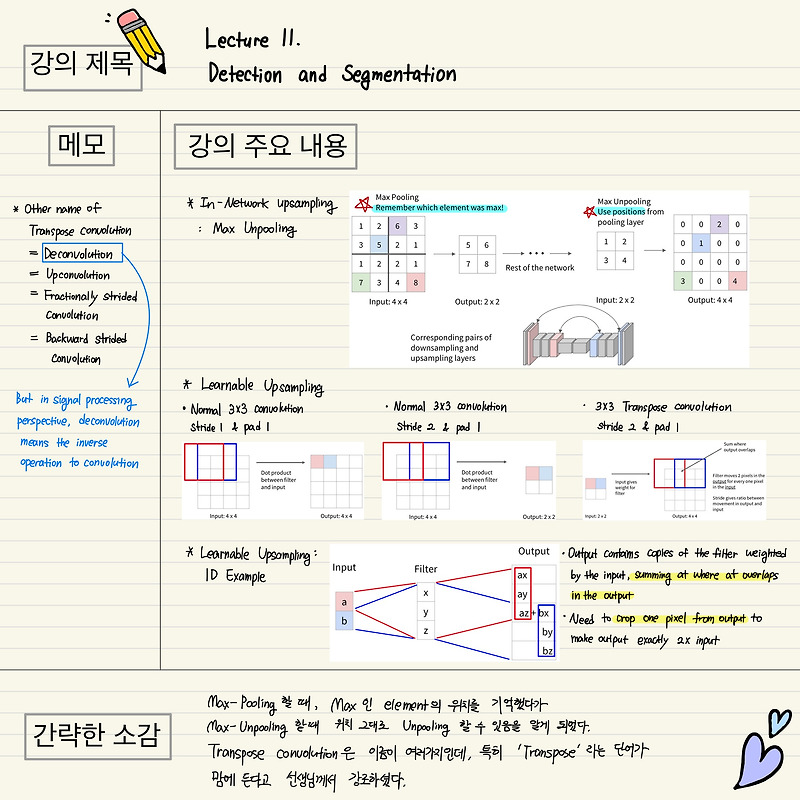 강의 제목
Lecture 11.
Detection and Segmentation
메모
* Other name of
Transpose convolution
= Deconvolution
= Upconvolution
= Fractionally strided
Convolution
= Backward strided
Convolution
But in signal processing
perspective, deconvolution
means the inverse
operation to convolution
강의 주요 내용
* In-Network upsampling
: Max Unpooling
Max Pooling
Remember which element was max!
1 2 6 3
3 5 2 1
1 2 2 1
7 3 4 8
Input: 4 x 4
5 6
7 8
Output: 2 x 2
• • •
Rest of the network
Max Unpooling
Use positions from
pooling layer
1 2
3 4
Input: 2 x 2
0 0 2 0
0 1 0 0
0 0 0 0
3 0 0 4
Output: 4 x 4
Corresponding pairs of
downsampling and
upsampling layers
* Learnable Upsampling
• Normal 3x3 convolution
stride 1 & pad 1
Dot product
between filter
and input
Input: 4 x 4
Output: 4 x 4
• Normal 3x3 convolution
stride 2 & pad 1
Dot product
between filter
and input
Input: 4 x 4
Output: 2 x 2
• 3x3 Transpose convolution
stride 2 & pad 1
Sum where
output overlaps
Input gives
weight for
filter
Filter moves 2 pixels in the
output for every one pixel
in the input
Stride gives ratio between
movement in output and
input
Input: 2 x 2
Output: 4 x 4
* Learnable Upsampling:
1D Example
Input
a
b
Filter
x
y
z
Output
ax
ay
az + bx
by
bz
• Output contains copies of the filter weighted
by the input, summing at where at overlaps
in the output
• Need to crop one pixel from output to
make output exactly 2x input
간략한 소감
Max-Pooling 할 때, Max 인 element의 위치를 기억했다가
Max-Unpooling 할때 위치 그대로 Unpooling 할 수 있음을 알게 되었다.
Transpose convolution은 이름이 여러가지인데, 특히 'Transpose' 라는 단어가
맘에 든다고 선생님께서 강조하셨다.